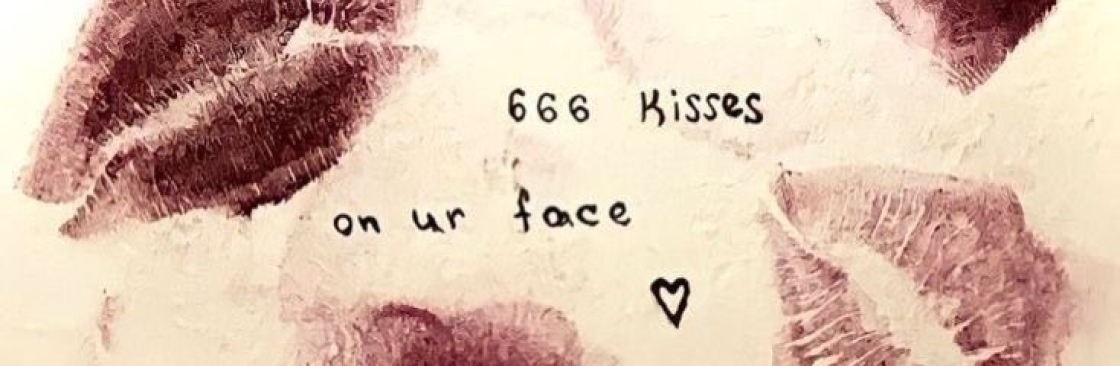 666 Kisses
on ur face
♡